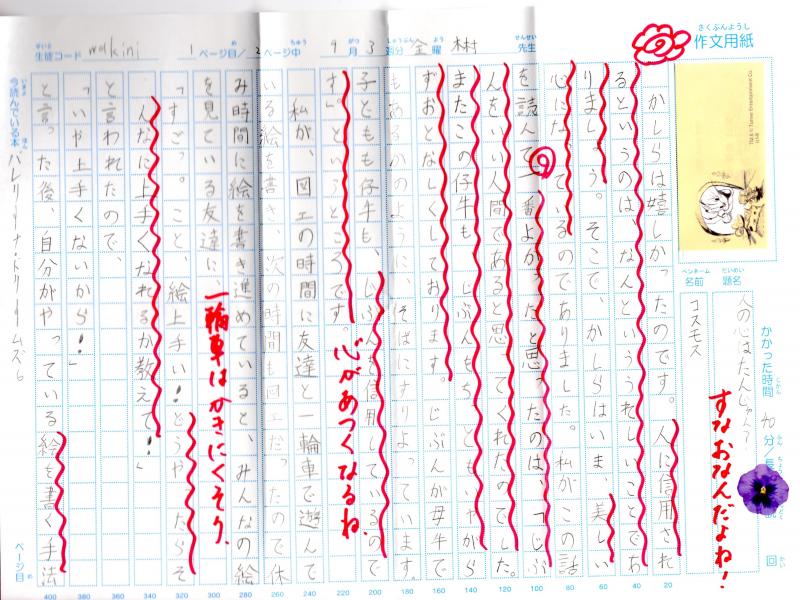 さくぶんようし
作文用紙
生徒コード
makini
1ページ目/2ページ中
9月3週分 金曜 木村 先生
TM & © Turner Entertainment Co.
だいめい
題名
ペンネーム
名前
コスモス
かかった時間
すなおなんだよね!
かしらは嬉しかったのです。人に信用され
るというのは、なんといううれしいことであ
りましょう。そこで、かしらはいま、美しい
心になっているのでありました。私がこの話
を読んで一番よかったと思ったのは、「じぶ
んをいい人間であると思ってくれたのでした。
またこの仔牛も、じぶんをちっともいやがら
ずおとなしくしております。じぶんが母牛で
もあるかのように、そばにすりよっています。
子どもも仔牛も、じぶんを信用しているので
す。」というところです。
心があつくなるね。
私が、図工の時間に友達と一輪車で遊んで
いる絵を書き、次の時間、図工だったので休
み時間に絵を書き進めていると、みんなの絵
を見ている友達に、
一輪車はかきにくそう。
「すごっ。こと、絵上手い!どうやったらそ
んなに上手くなれるか教えて!」
と言われたので、
「いや上手くないから!」
と言った後、自分がやっている絵を書く手法
今読んでいる本
バレリーナ・ドリームズ6
ページ目
20
40
60
80
100
120
140
160
180
200
220
240
260
280
300
320
340
360
380
400